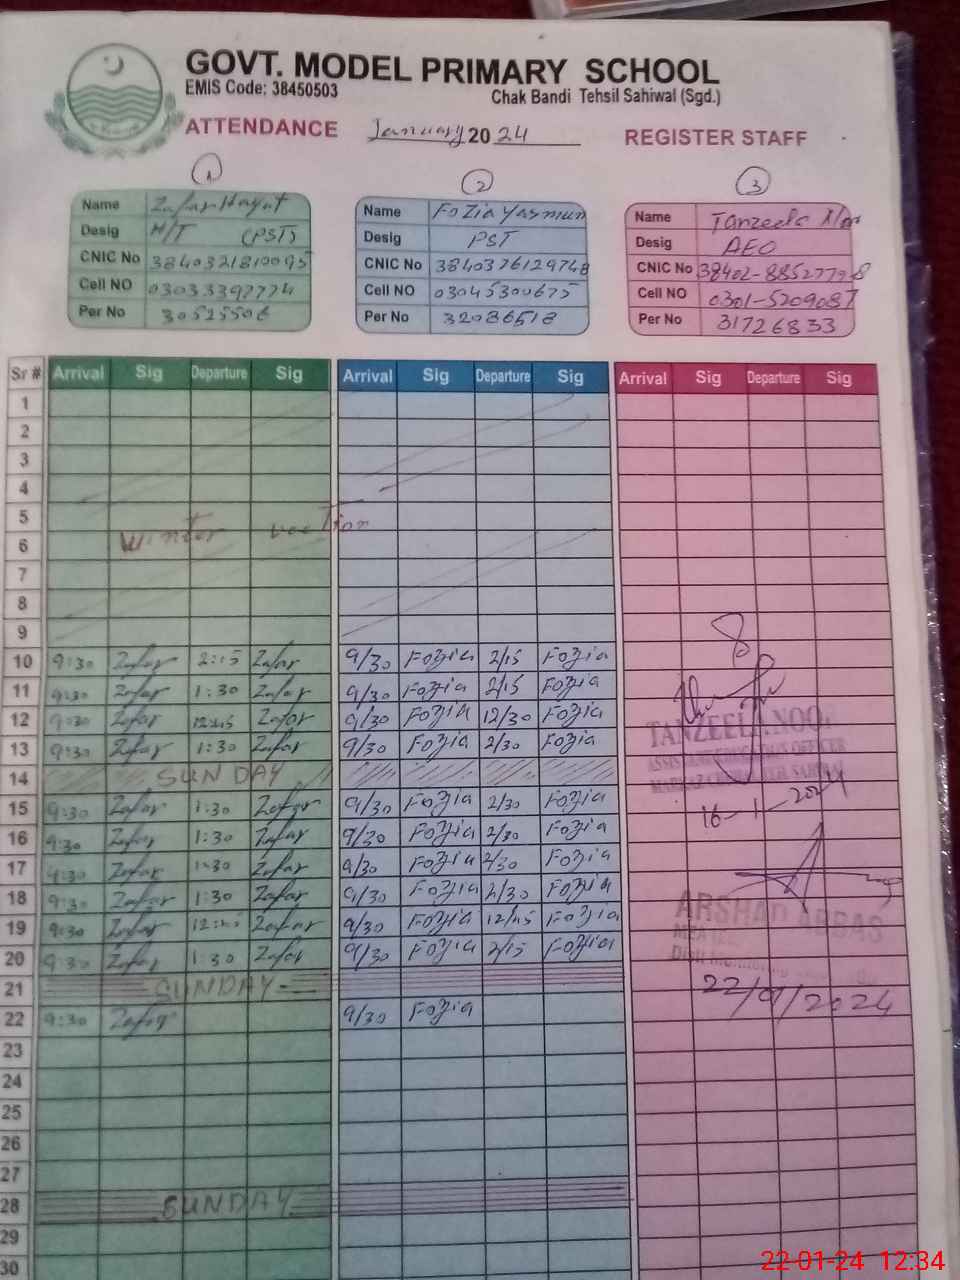 GOVT. MODEL PRIMARY SCHOOL
EMIS Code: 38450503
Chak Bandi Tehsil Sahiwal (Sgd.)
ATTENDANCE January 2024 REGISTER STAFF
1 2 3
Name Zafar Hayat Name Fozia Yasmun Name Tanzeela
Desig H/T (PST) Desig PST Desig AEO
CNIC No 3840321810095 CNIC No 3840376129748 CNIC No 38402-8852779-8
Cell NO 03033397774 Cell NO 03045300675 Cell NO 0301-5209087
Per No 30525506 Per No 32086518 Per No 31726833
Sr # Arrival Sig Departure Sig Arrival Sig Departure Sig Arrival Sig Departure Sig
1
2
3
4
5
6 winter vection
7
8
9
10 9:30 Zafar 2:15 Zafar 9/30 Fozia 2/15 Fozia
11 9:30 Zafar 1:30 Zafar 9/30 Fozia 2/15 Fozia
12 9:30 Zafar 12:45 Zafar 9/30 Fozia 12/30 Fozia TANZEELA NOOR
13 9:30 Zafar 1:30 Zafar 9/30 Fozia 2/30 Fozia ASSISTANT EDUCATION OFFICER
14 SUNDAY
15 9:30 Zafar 1:30 Zafar 9/30 Fozia 2/30 Fozia 16-1-2024
16 9:30 Zafar 1:30 Zafar 9/30 Fozia 2/30 Fozia
17 9:30 Zafar 1:30 Zafar 9/30 Fozia 2/30 Fozia
18 9:30 Zafar 1:30 Zafar 9/30 Fozia 2/30 Fozia
19 9:30 Zafar 12:45 Zafar 9/30 Fozia 12/45 Fozia ARSHAD ABBAS
20 9:30 Zafar 1:30 Zafar 9/30 Fozia 2/15 Fozia
21 SUNDAY
22 9:30 Zafar 9/30 Fozia 22/01/2024
23
24
25
26
27
28 SUNDAY
29
30
22-01-24 12:34